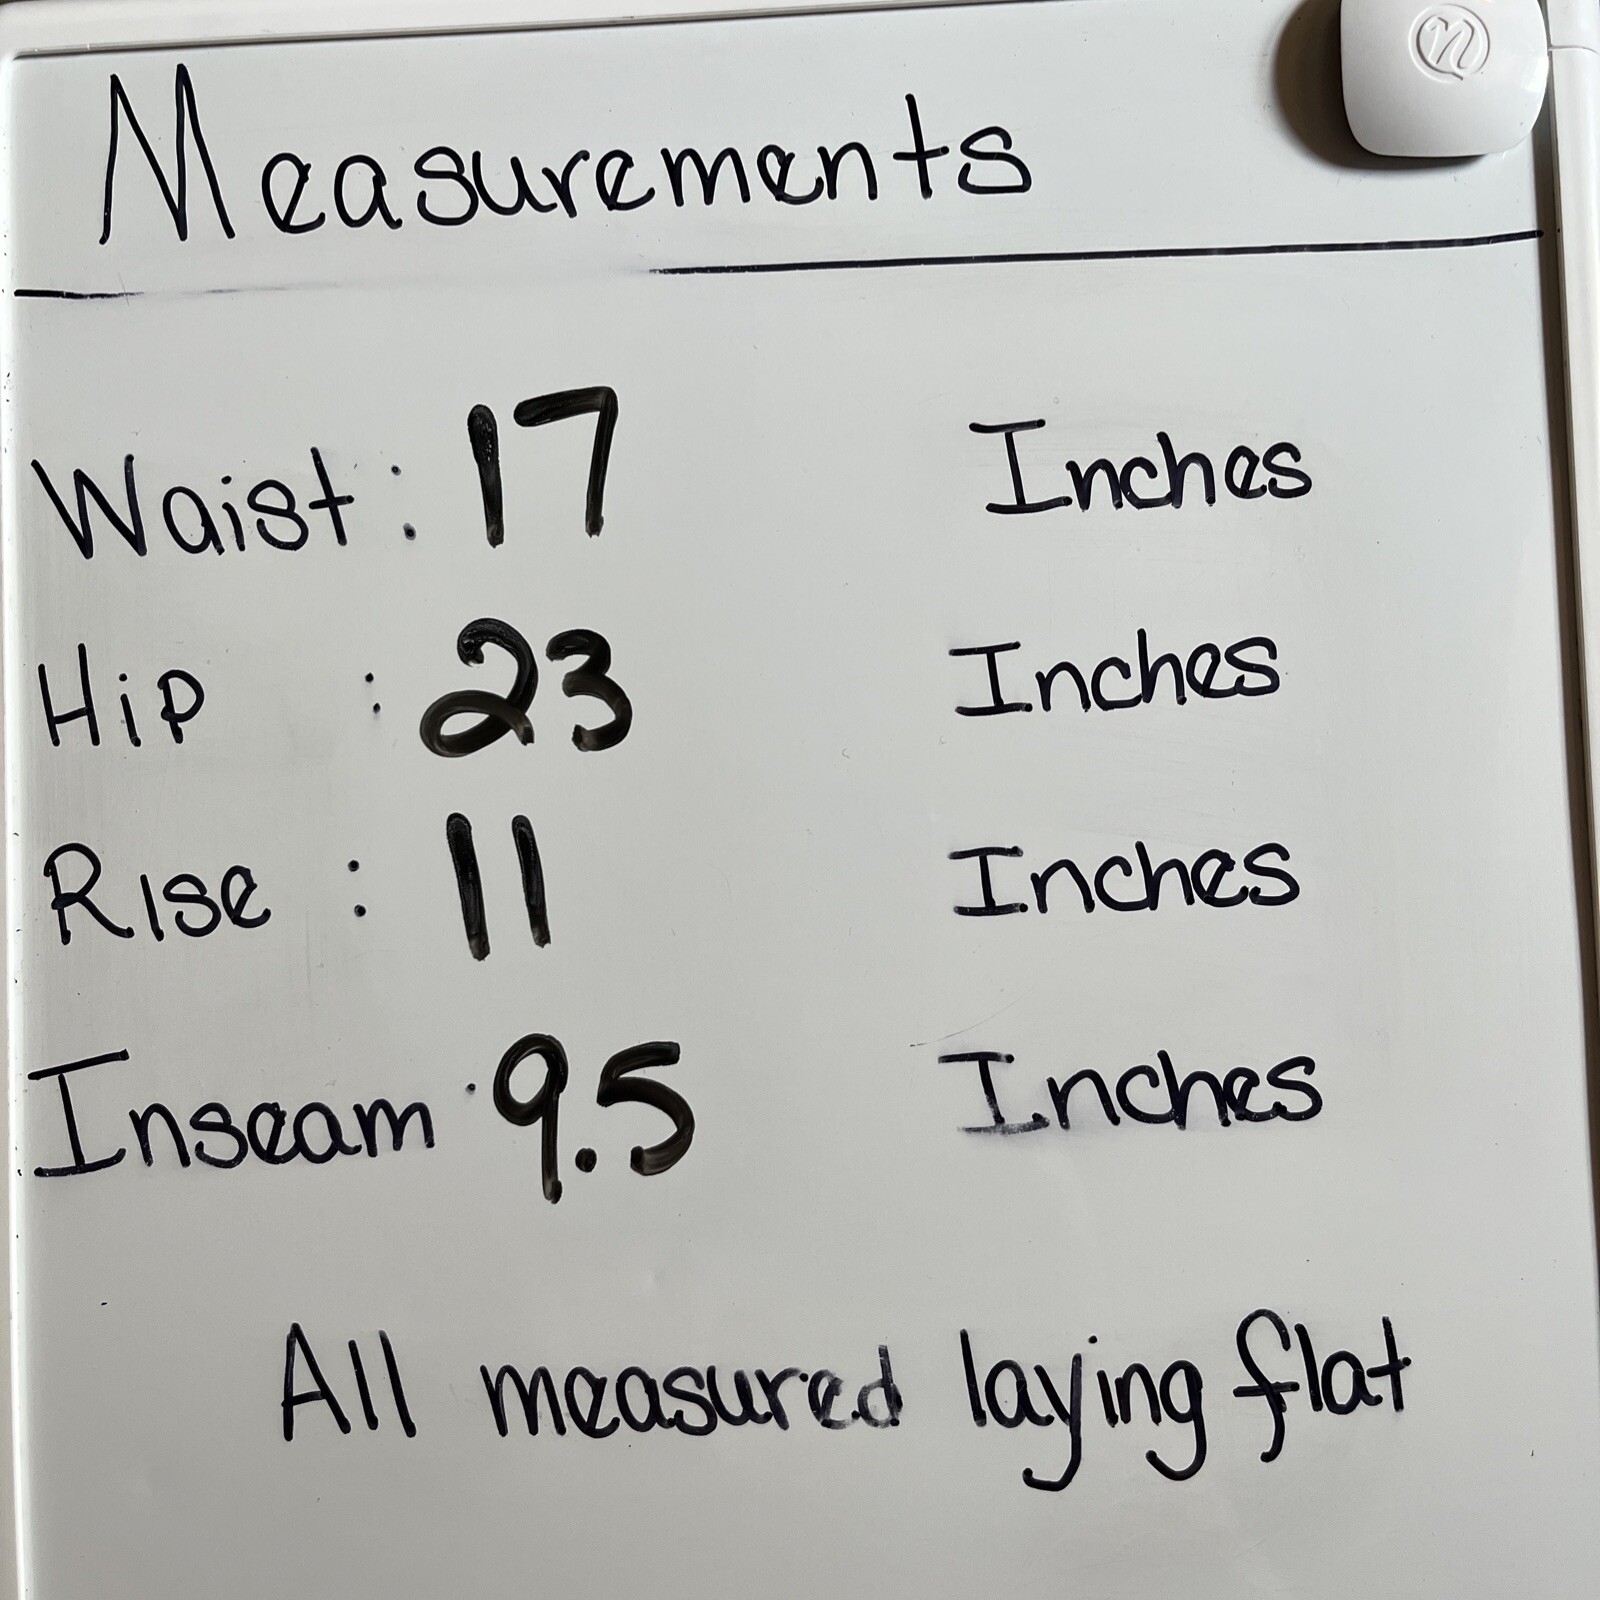 Measurements
Waist: 17 Inches
Hip : 23 Inches
Rise : 11 Inches
Inseam · 9.5 Inches
All measured laying flat